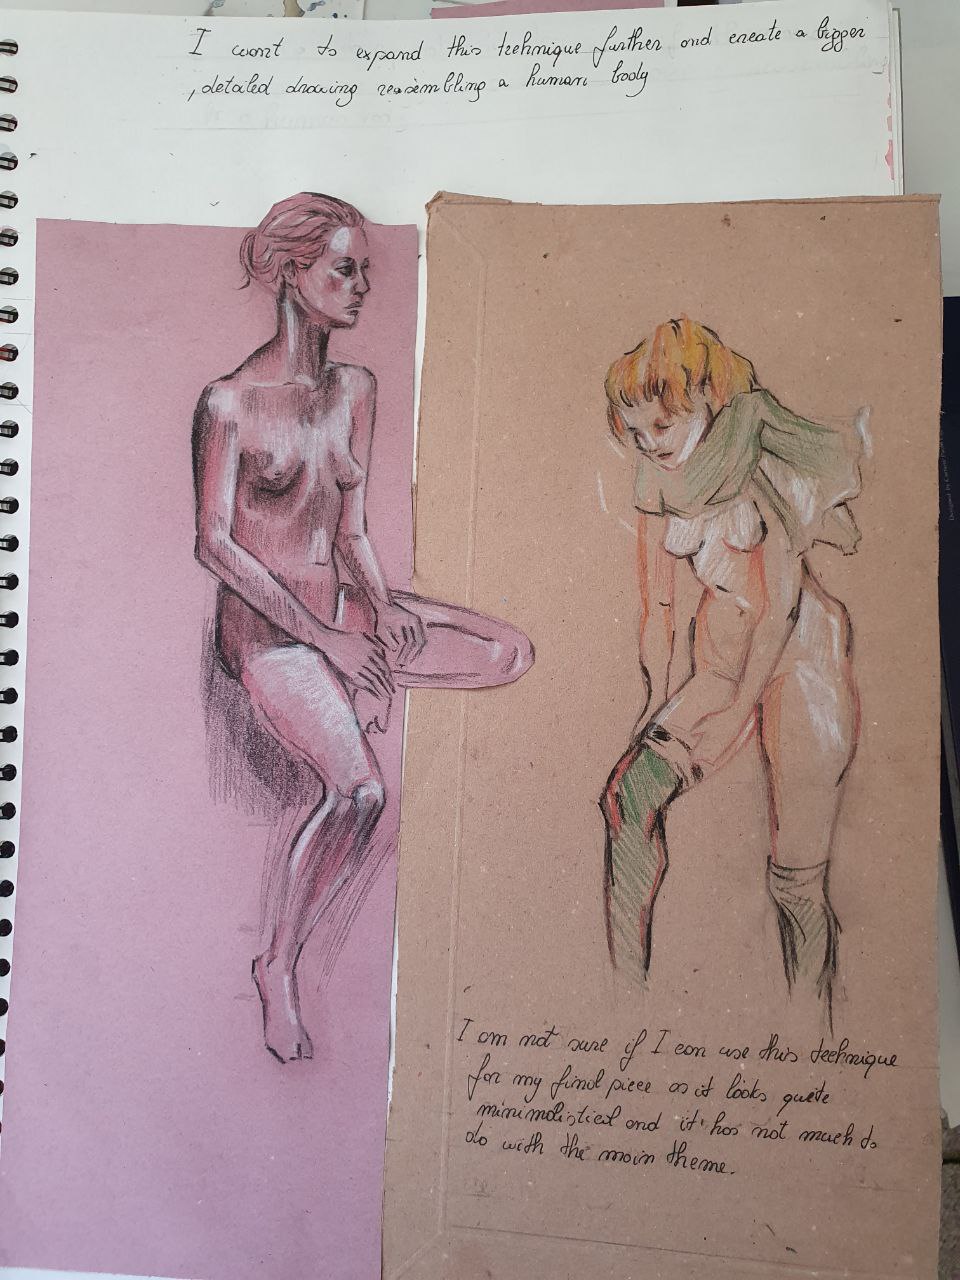 I want to expand this technique further and create a bigger
, detailed drawing resembling a human body
I am not sure if I can use this technique
for my final piece as it looks quite
minimalistical and it has not much to
do with the main theme.